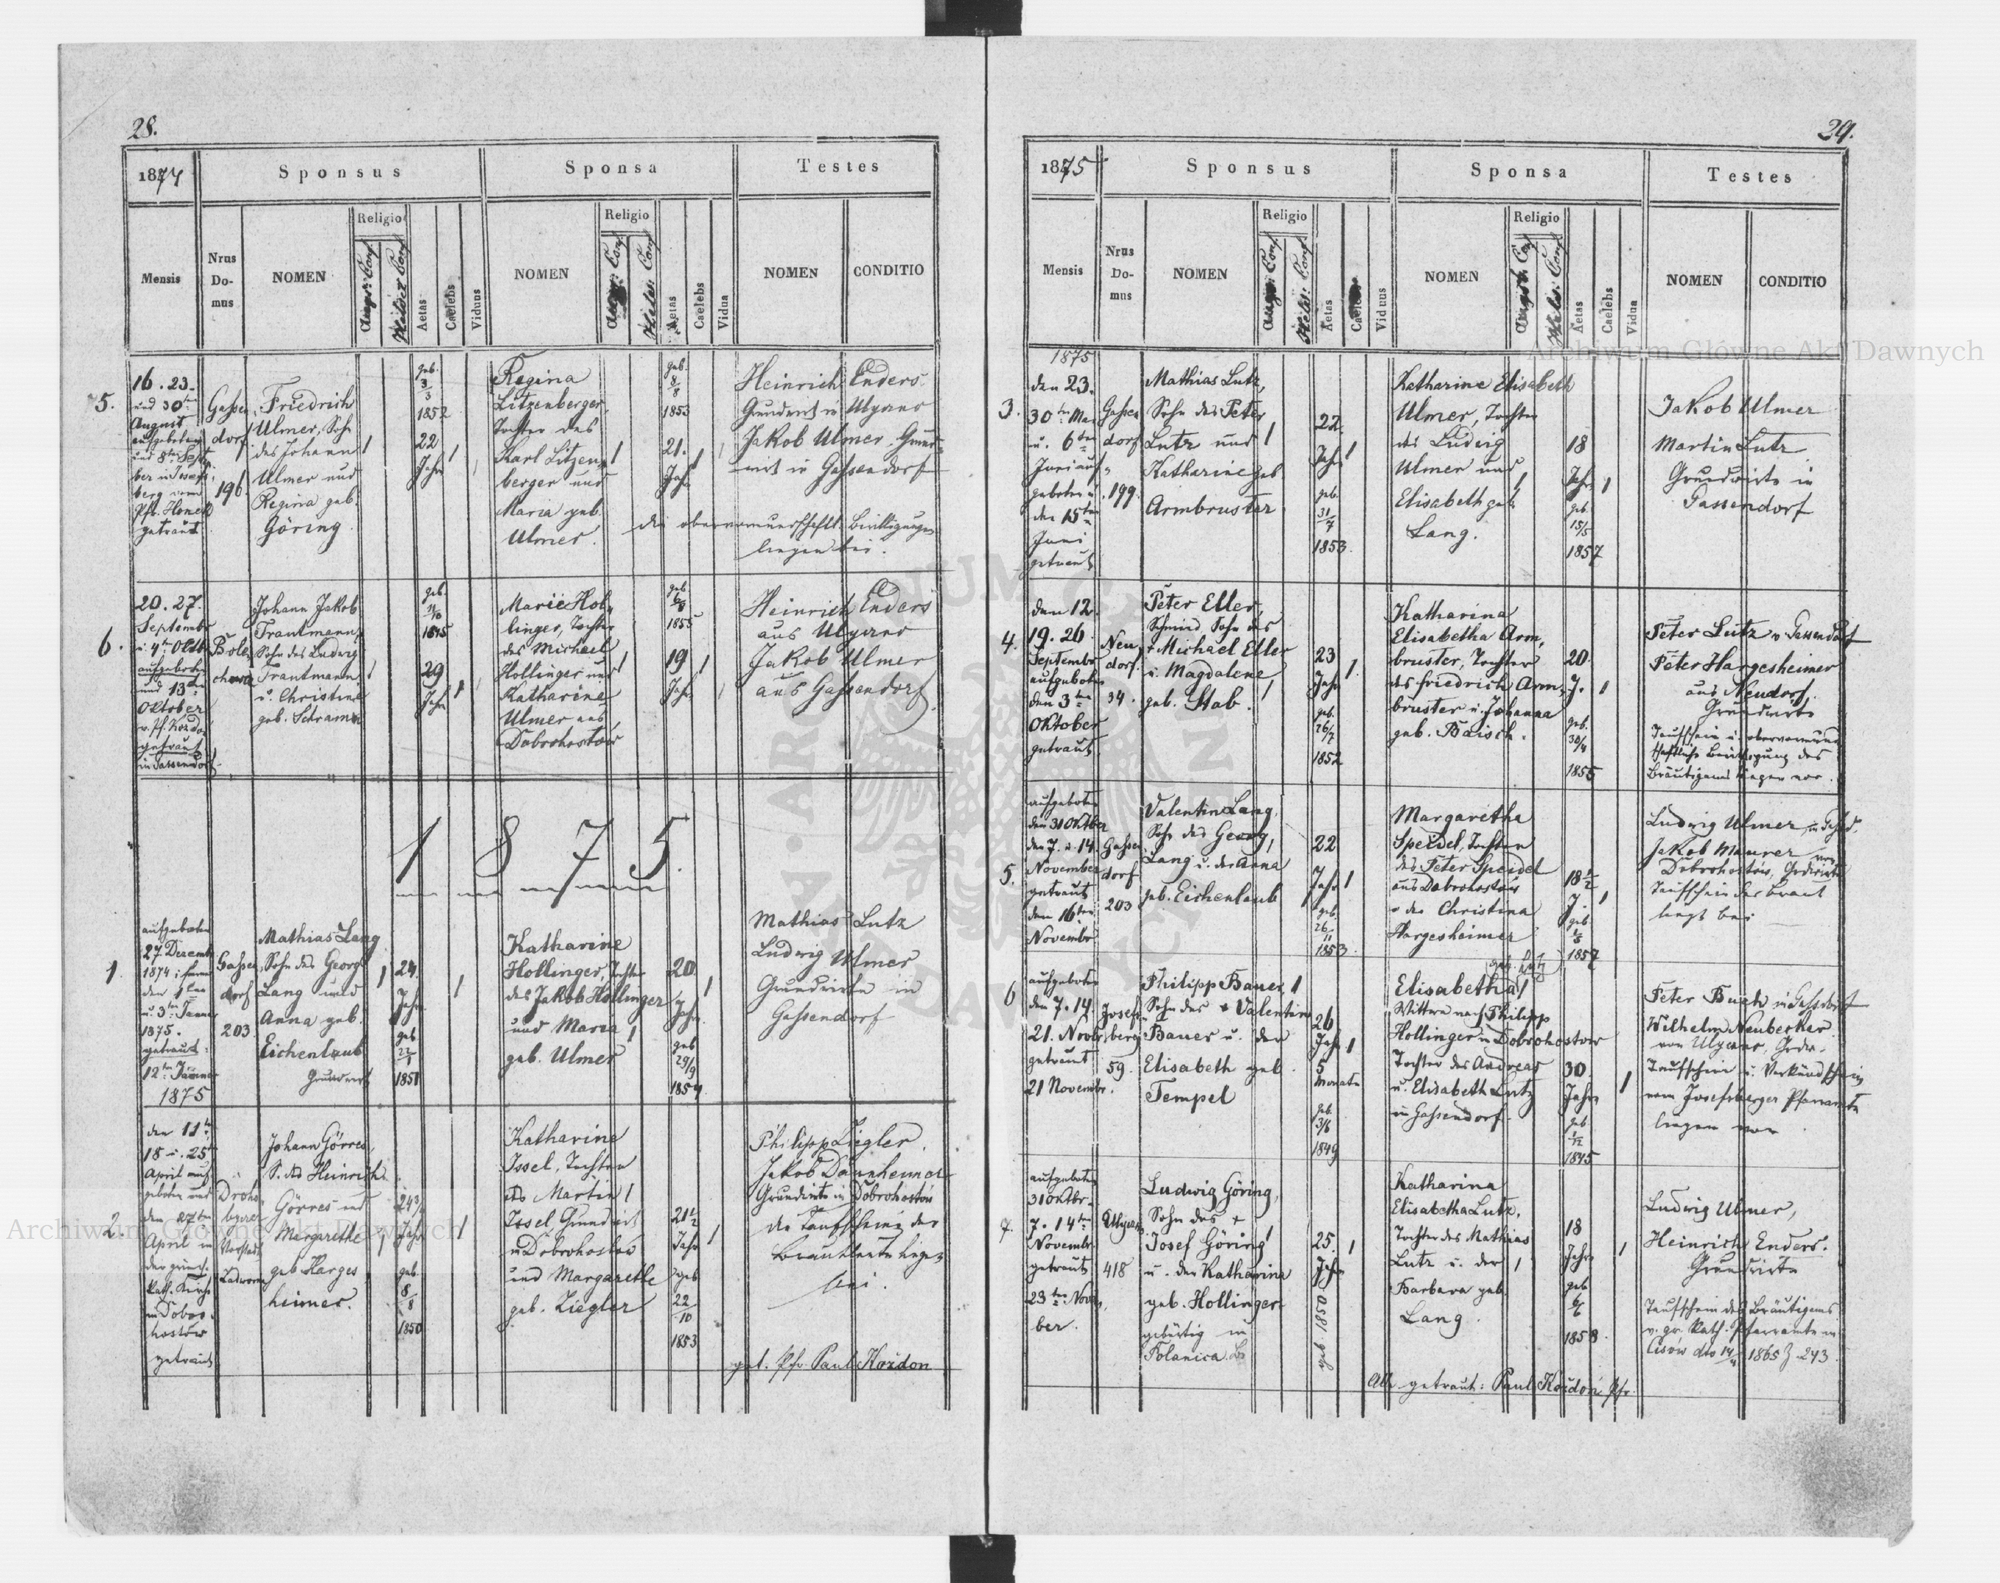 28.
1874
Sponsus
Sponsa
Testes
Mensis
Nrus Domus
NOMEN
Religio
Augsb. Conf.
Helvet. Conf.
Aetas
Caelebs
Viduus
NOMEN
Religio
Augsb. Conf.
Helv. Conf.
Aetas
Caelebs
Vidua
NOMEN
CONDITIO
5.
16. 23.
und 30ten
August
aufgeboten
und 8ten Septem
ber in Josefs
berg vom
Pfr. Honek
getraut
Gassen
dorf
196
Friedrich
Ulmer, Sohn
des Johann
Ulmer und
Regina geb.
Göring.
geb.
3/3
1852
22
Jahr
Regina
Litzenberger
Tochter des
Karl Litzen
berger und
Maria geb.
Ulmer.
geb.
8/8
1853
21.
Jahr
Heinrich Enders
Grundwirt in Ugartsberg
Jakob Ulmer Grund
wirt in Gassendorf
die obervormundschaftl. Bewilligungen
liegen bei.
6.
20. 27.
Septembr
u. 4ten Oktb
aufgeboten
und 13ten
Oktober
v. Pf. Kozdon
getraut
in Gassendorf
Bole
chow
Johann Jakob
Trautmann,
Sohn des Ludwig
Trautmann
u. Christine
geb. Schramm
geb.
11/10
1845
29
Jahr
Marie Hol
linger, Tochter
des Michael
Hollinger und
Katharine
Ulmer aus
Dobrohostow
geb.
1855
19
Jahr
Heinrich Enders
Jakob Ulmer
aus Gassendorf.
1875.
1.
aufgeboten
27 Dezemb
1874; ferner
den 1ten
u. 3ten Januar
1875.
getraut:
12ten Jänner
1875
Gassen
dorf
203
Mathias Lang
Sohn des Georg
Lang und
Anna geb.
Eichenlaub
Grundwirt
24.
Jahr
geb
1851
Katharine
Hollinger, Tochter
des Jakob Hollinger
und Maria
geb. Ulmer
20
Jahr
geb
29/9
1854
Mathias Lutz
Ludwig Ulmer
Grundwirte in
Gassendorf
2.
den 11ten
18 u. 25
April auf
geboten und
den 27ten
April in
der griech.
kath. Kirche
in Dobro
hostow
getraut
Droho
byczer
Vorstadt
Zadworna
Johann Görres,
S. des Heinrich
Görres und
Margarethe
geb Harges
heimer.
24 3/4
Jahr
geb.
8/8
1850
Katharine
Issel, Tochter
des Martin
Issel, Grundwirt
in Dobrohostow
und Margarethe
geb. Ziegler
21 1/2
Jahr
geb
22/10
1853
Philipp Ziegler.
Jakob Dannheimer
Grundwirte in Dobrohostow
die Taufscheine der
Brautleute liegen
bei.
get. Pfr. Paul Kozdon
29.
1875
Sponsus
Sponsa
Testes
Mensis
Nrus Domus
NOMEN
Religio
Augsb. Conf.
Helv. Conf.
Aetas
Caelebs
Viduus
NOMEN
Religio
Augsb. Conf.
Helv. Conf.
Aetas
Caelebs
Vidua
NOMEN
CONDITIO
3.
1875
den 23.
30ten Mai
u. 6ten
Juni auf
geboten u.
den 15ten
Juni
getraut
Gassen
dorf
199.
Mathias Lutz,
Sohn des Peter
Lutz und
Katharine geb.
Armbruster
22
Jahr
geb.
31/7
1853.
Katharine Elisabeth
Ulmer, Tochter
des Ludwig
Ulmer und
Elisabeth geb.
Lang.
18
Jahr
geb
15/5
1857
Jakob Ulmer
Martin Lutz
Grundwirte in
Gassendorf
4.
den 12.
19. 26.
September
aufgeboten
den 3ten
Oktober
getraut.
Neu
dorf.
34.
Peter Eller,
Schmied, Sohn des
+ Michael Eller
u. Magdalene
geb. Stab.
23
Jahr
geb.
26/7
1852
Katharina
Elisabetha Arm,
bruster, Tochter
des Friedrich Arm,
bruster u. Johanna
geb. Baisch.
20.
J.
geb.
30/4
1855
Peter Lutz v. Gassendorf
Peter Hargesheimer
aus Neudorf.
Grundwirte
Taufschein u. obervormund
schaftliche Bewilligung des
Bräutigams liegen vor.
5.
aufgeboten
den 31 Oktber
den 7. u. 14.
November
getraut
den 16ten
November
Gassen
dorf
203
Valentin Lang,
Sohn des Georg,
Lang u. der Anna
geb. Eichenlaub
22
Jahr
geb.
26/11
1853.
Margaretha
Speidel, Tochter
des Peter Speidel
aus Dobrohostow
u. der Christina
Hargesheimer
18 1/2
J.
geb
1857
Ludwig Ulmer, in Gassd.
Jakob Maurer von
Dobrohostow, Grdwirte
Taufschein der Braut
liegt bei
6
aufgeboten
den 7. 14.
21. Novbr.
getraut
21 Novembr.
Josefs
berg
59.
Philipp Bauer,
Sohn des + Valentin
Bauer u. der
Elisabeth geb.
Tempel
26
Jahr
5
Monate
geb.
13/6
1849
geb. Lutz
Elisabetha
Wittwe nach Philipp
Hollinger in Dobrohostow
Tochter des Andreas
u. Elisabeth Lutz
in Gassendorf.
30.
Jahr
geb
1845
Peter Buch in Gassendorf
Wilhelm Neubecker
Taufschein u. Verkündschein
vom Josefsberger Pfarramte
liegen vor.
7.
aufgeboten
31 Oktbr.
7. 14ten
Novembr.
getraut
23ten Novem
ber.
418
Ludwig Göring,
Sohn des +
Josef Göring
u. der Katharina
geb. Hollinger
gebürtig in
Polanica
25.
Jahr
geb 1850
Katharina
Elisabetha Lutz,
Tochter des Mathias
Lutz u. der
Barbara geb.
Lang
18
Jahr
geb
6/6
1858.
Ludwig Ulmer,
Heinrich Enders.
Grundwirte
Taufschein des Bräutigams
v. gr. kath. Pfarramte in
Cisow dto 14/11 1865 Z 243.
Alle getraut: Paul Kozdon Pfr
Archiwum Główne Akt Dawnych
Archiwum Główne Akt Dawnych